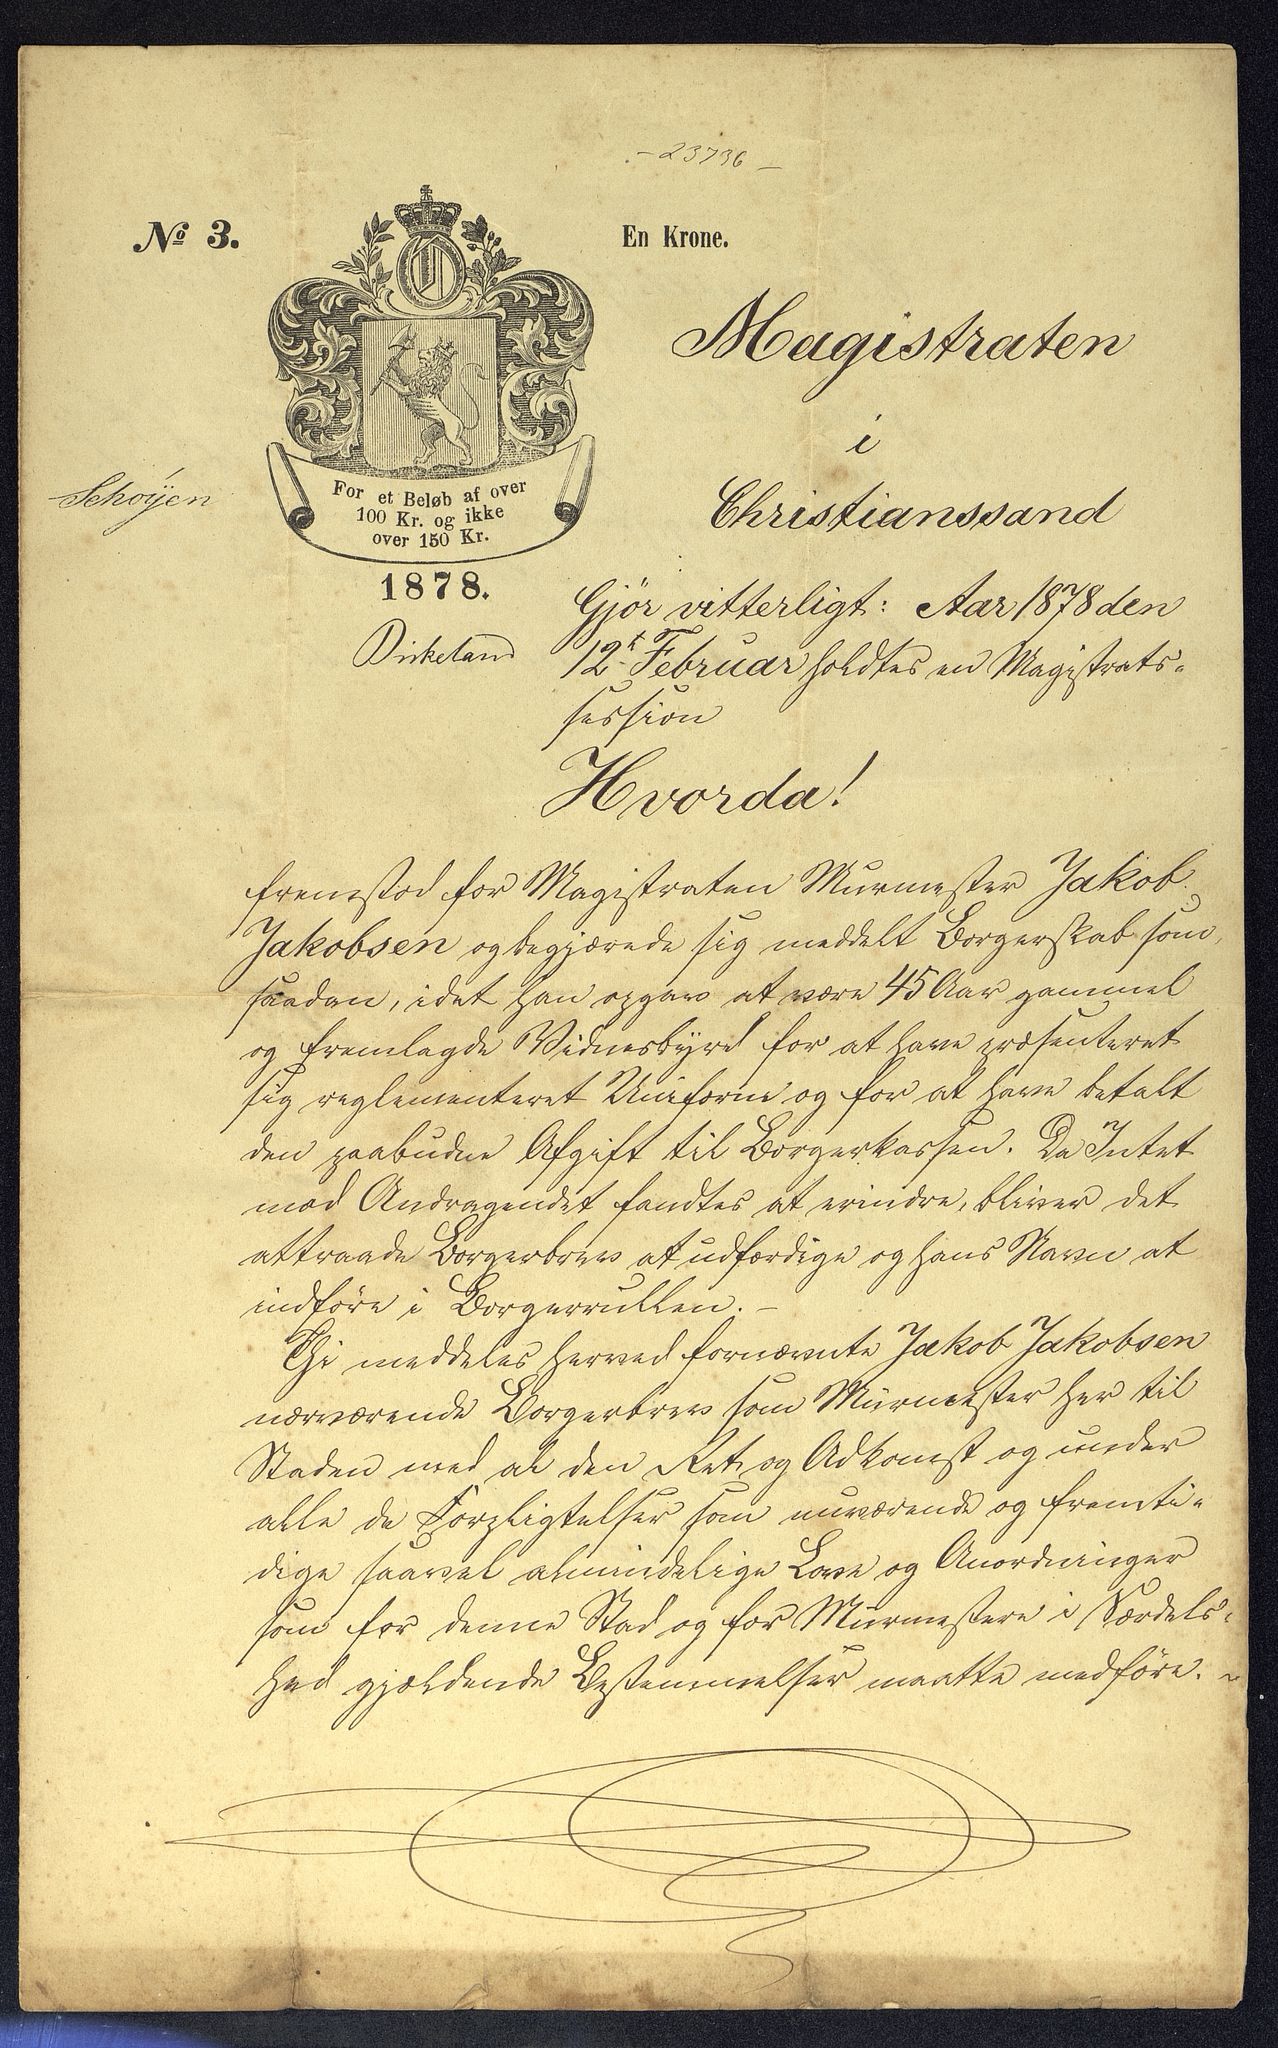 - 23736 -
No 3.
En Krone.
Magistraten
i
Christianssand
Schöyen
For et Beløb af over
100 Kr. og ikke
over 150 Kr.
1878.
Birkeland
Gjör vitterligt: Aar 1878 den
12t Februar holdtes en Magistrats-
session
Hvorda!
fremstod for Magistraten Murmester Jakob
Jakobsen og begjærede sig meddelt Borgerskab som
saadan, idet han opgav at være 45 Aar gammel
og fremlagde Vidnesbyrd for at have præsenteret
sig reglementeret Uniform og for at have betalt
den paabudne Afgift til Borgerkassen. Da Intet
mod Andragendet fandtes at erindre, bliver det
attraade Borgerbrev at udfærdige og hans Navn at
indföre i Borgerrullen. -
Thi meddeles herved fornævnte Jakob Jakobsen
nærværende Borgerbrev som Murmester her til
Staden med al den Ret og Adkomst og under
alle de Forpligtelser som nuværende og fremti-
dige saavel almindelige Love og Anordninger
som for denne Stad og for Murmestere i Særdels-
hed gjældende Bestemmelser maatte medföre. -